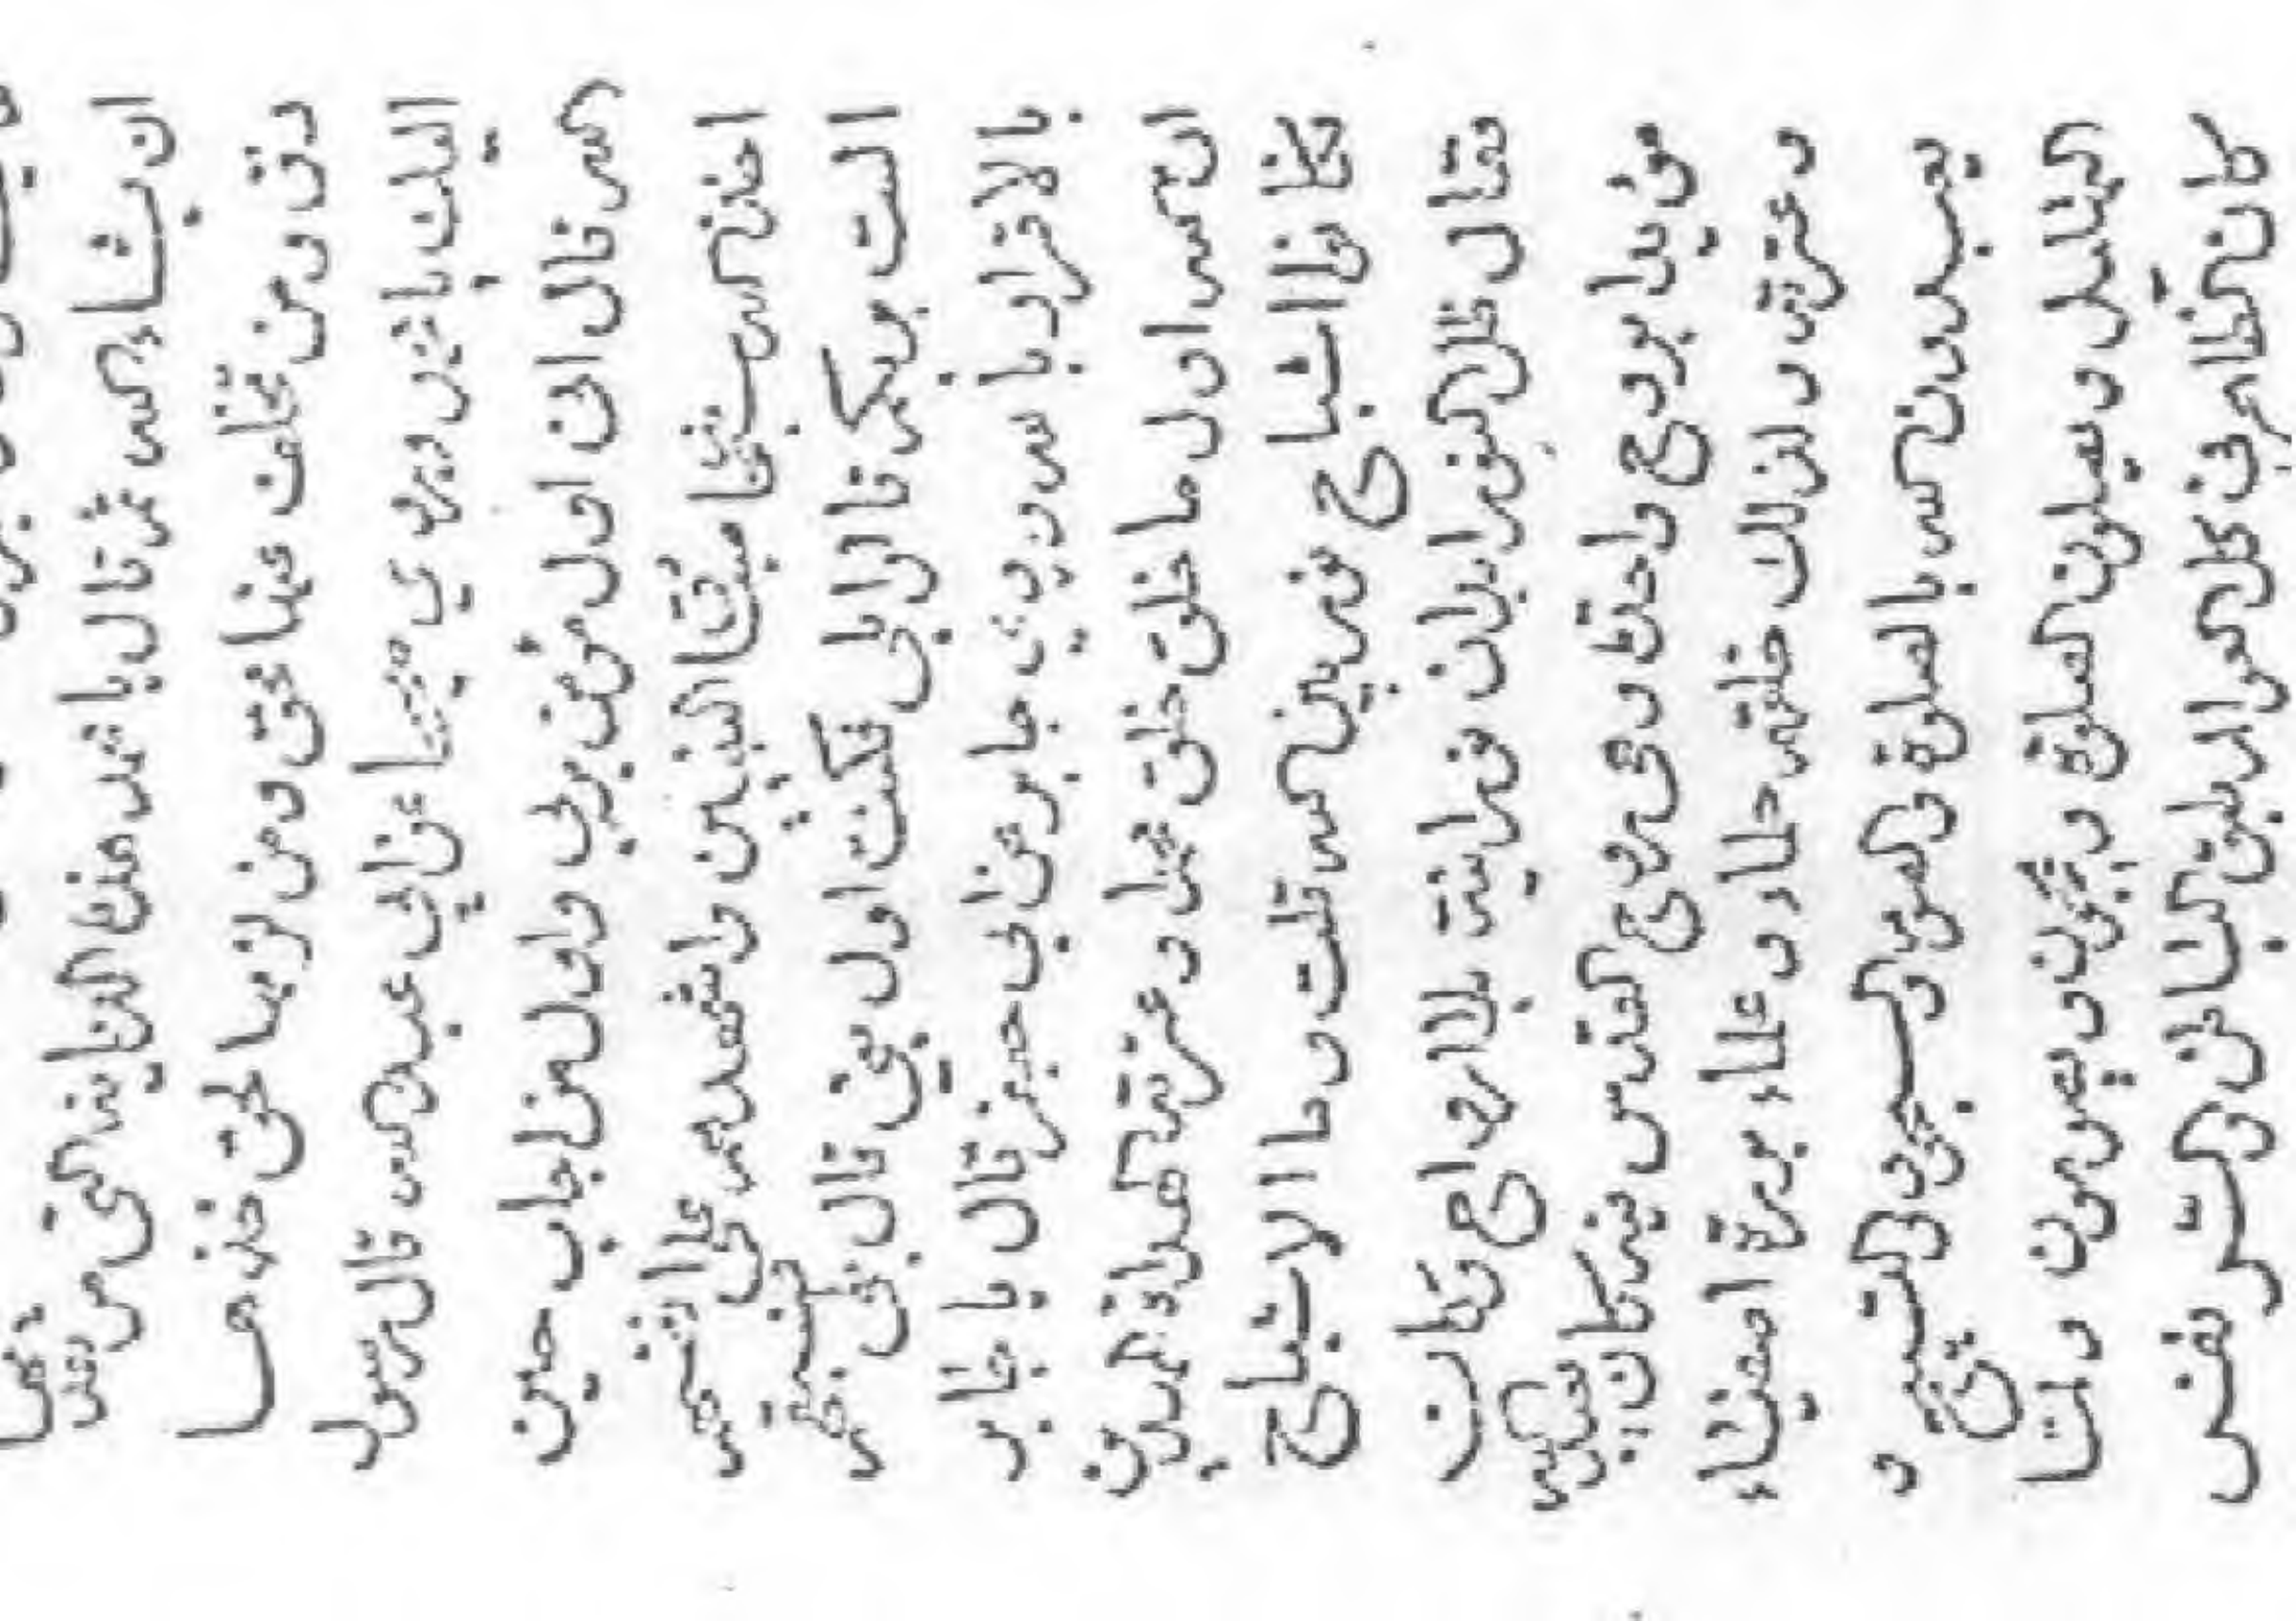 ان شاء الله ثم قال يا محمد هذه التي من
ومن تخلف عنها محق ومن لزمها لحق خذها
اليك عن ابي عبد الله قال رسول
الله قال اني اول من امن بربي واول من اجاب حين
اخذ الله ميثاق النبيين واشهدهم على انفسهم
الست بربكم قالوا بلى فكنت اول نبي قال بلى فسبقتهم
بالاقرار بالله جابر عن ابي جعفر قال يا جابر
ان الله اول ما خلق خلق محمدا و عترته الهداة المهتدين
فكانوا اشباح نور بين يدي الله قلت وما الاشباح
فقال ظل النور ابدان نورانية بلا ارواح وكان
مؤيدا بروح واحدة وهي روح القدس فبه كان يعبد الله
و عترته ولذلك خلقهم حلماء و علماء بررة اصفياء
يعبدون الله بالصلوة والصوم والسجود والتسبيح و
التهليل ويصلون الصلوة ويحجون ويصومون ولما
كان الظاهر في كل العوالم الباطن والقشر بنفس